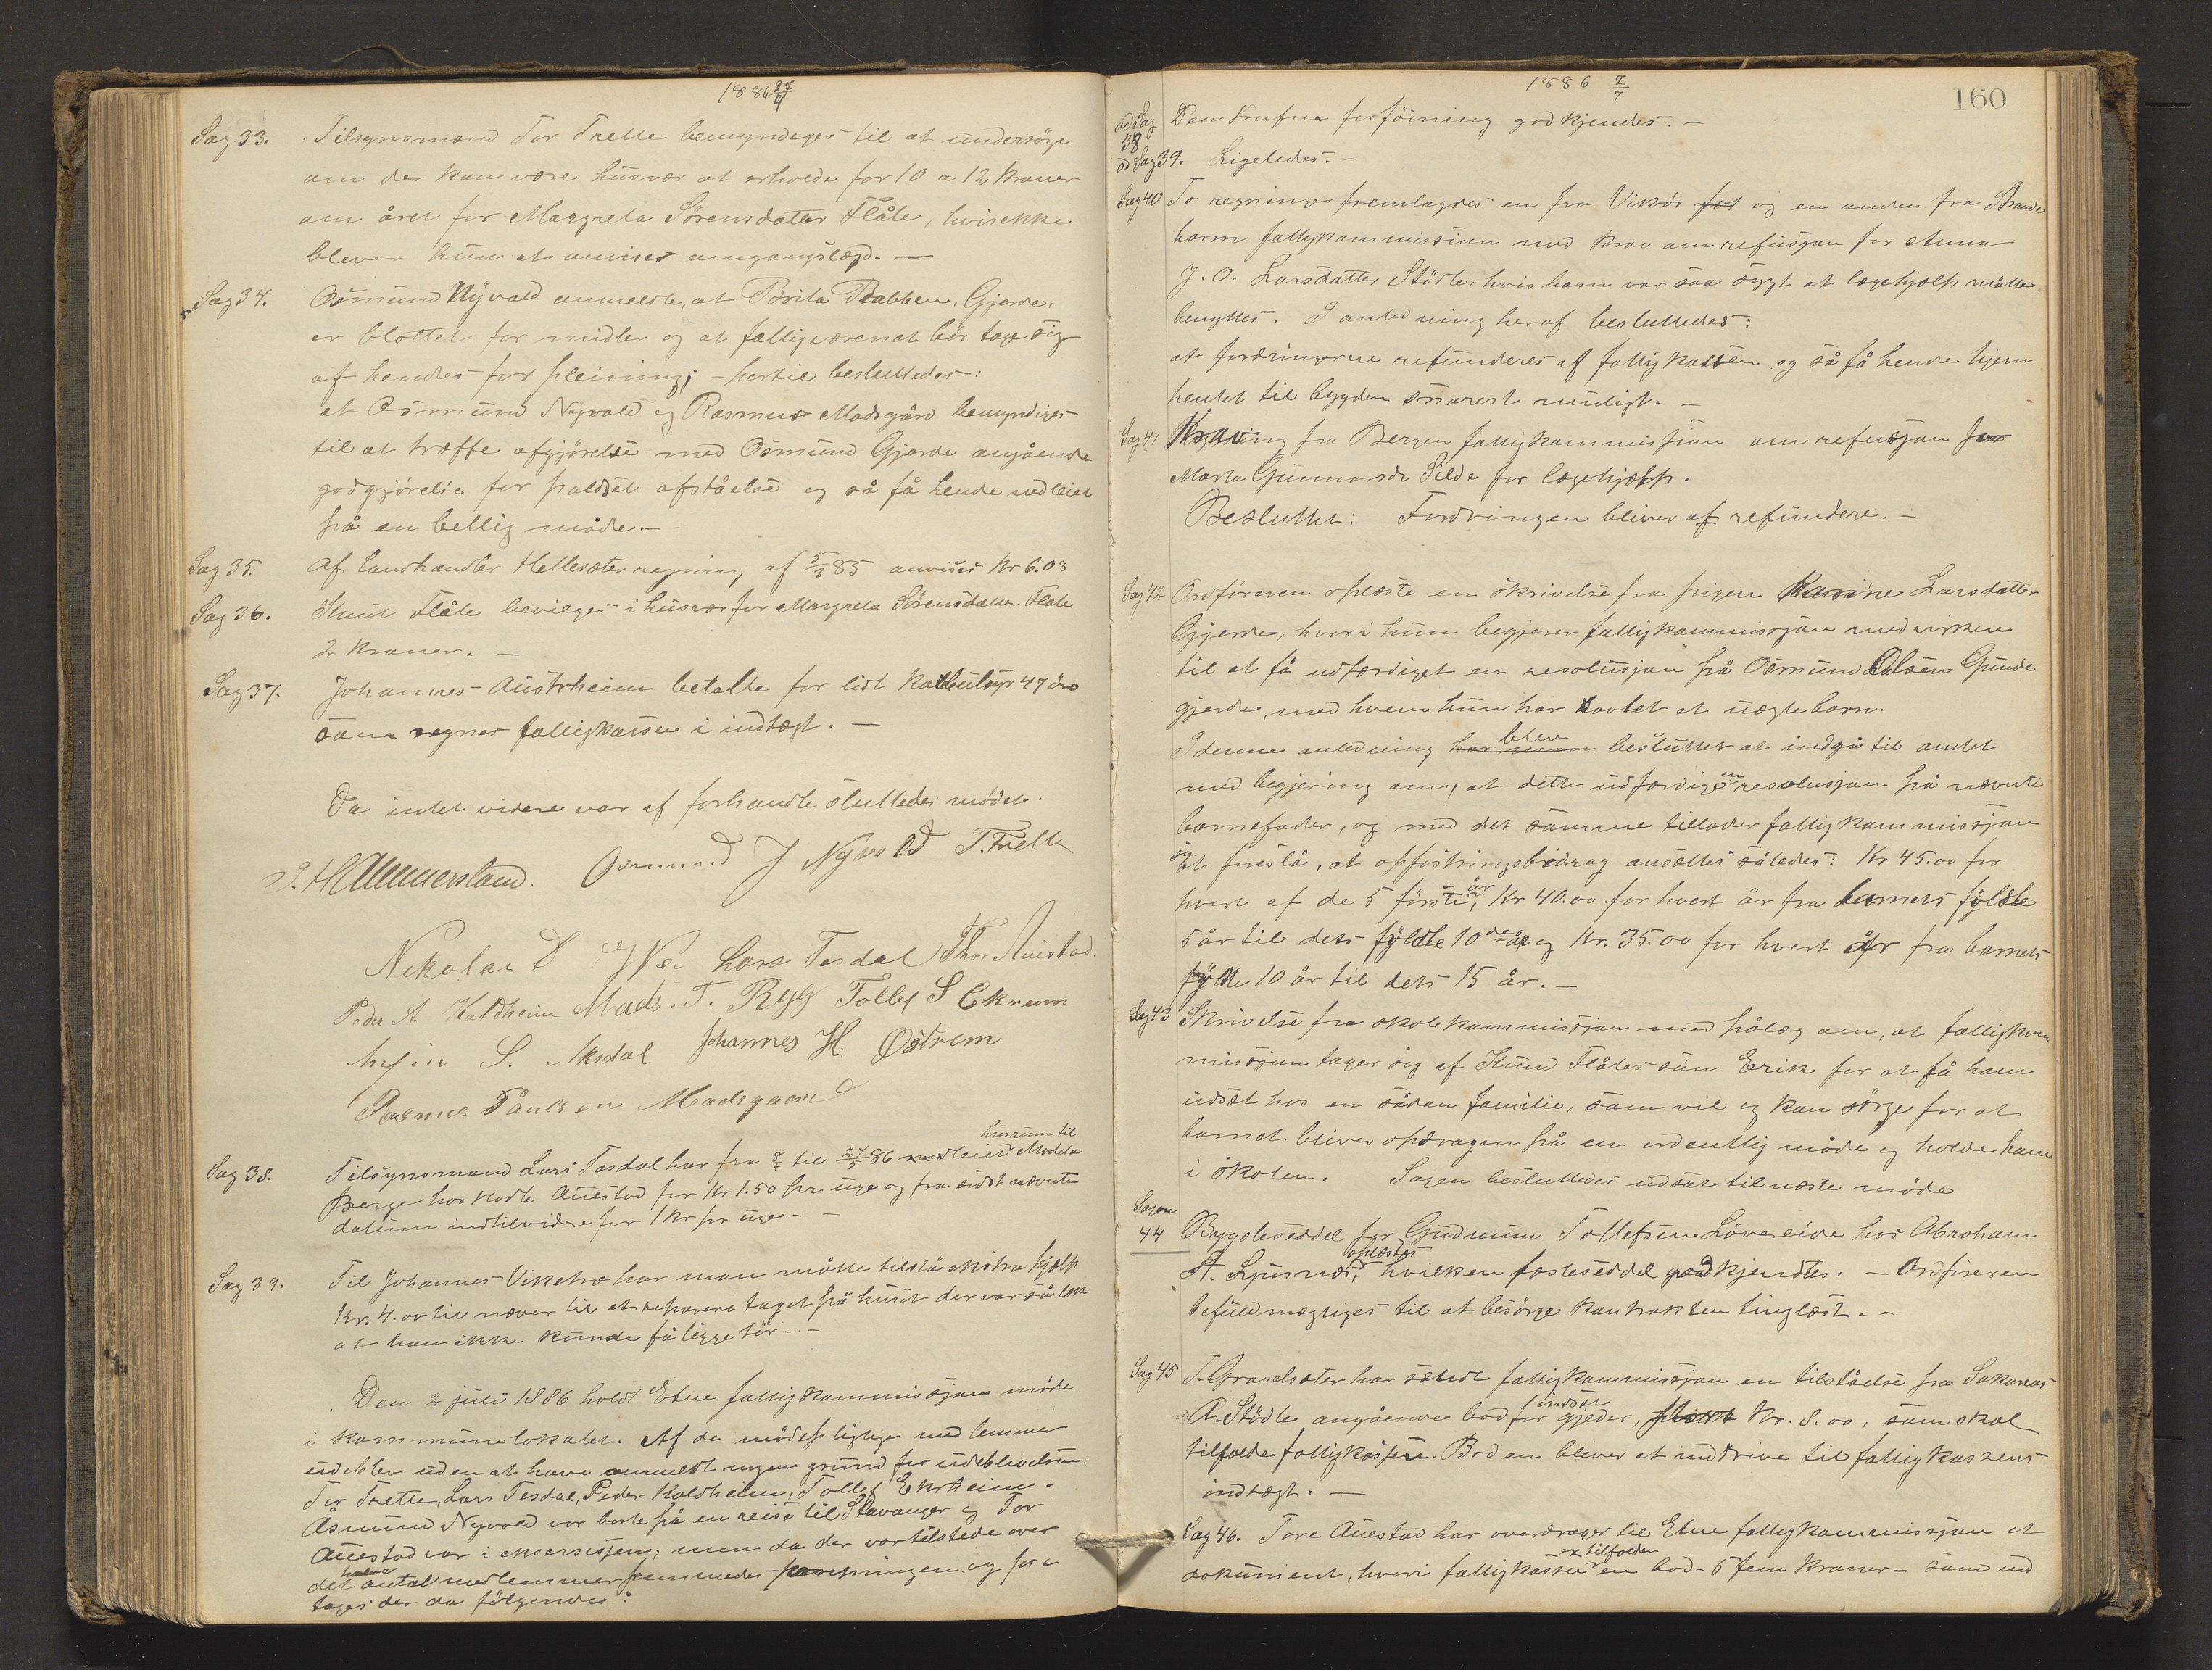 1886 27/4
Sag 33. Tilsynsmand Tor Frette bemyndeges til at undersøge
om der kan være husvær at erholde for 10 a 12 kroner
om året for Margreta Sørensdatter Flåte, hvis ikke
blever hun at anvises omgangslægd. —
Sag 34. Osmund Nyvold anmeldte, at Brita Rabben, Gjerde,
er blottet for midler og at fattigvæsenet bør tage sig
af hendes forpleining; - hertil besluttedes:
at Osmund Nyvold og Rasmus Madsgård bemyndiges
til at træffe afgjørelse med Osmund Gjerde angående
godgjørelse for pladset afståelse og så få hende nedleiet
på en bellig måde. —
Sag 35. Af landhandler Hellesæter regning af 5/3 85 anvises Kr 6.08
Sag 36. Knut Flåte bevilges i husvær for Margreta Sörensdatter Flåte
2 kroner. —
Sag 37. Johannes Austrheim betalte for lidt 47 øre
som regnes fattigkassen i indtægt. —
Da intet videre var at forhandle sluttedes mödet.
Osmund J Nyvold T. Frette
Nikolai Lars Tesdal Thor Auestad
Peder A. Kaldheim Mads. T. Ryg Tollef S Ekrem
S. Aksdal Johannes H. Østrem
Rasmus Paulsen Madsgaard
husrum til
Sag 38. Tilsynsmand Lars Tesdal har fra til 27/5 86 leiet Marta
Berge hos Auestad for Kr 1.50 pr uge og fra sidst nævnte
datum indtilvidere for 1 Kr pr uge. —
Sag 39. Til Johannes Viketræ har man måtte tilstå ekstra hjælp
Kr. 4.00 til næver til at reparere taget på huset der var så læk
at han ikke kunde få ligge tör. —
Den 2 juli 1886 holdt Etne fattigkommissjon møde
i kommunelokalet. Af de mødepligtige medlemmer
udeblev uden at have anmeldt nogen grund for udeblivelsen:
Tor Frette, Lars Tesdal, Peder Kaldheim, Tollef Ekrheim.
Åsmund Nyvold var borte på en reise til Stavanger og Tor
Auestad var i eksersisjen; men da der var tilstede over
halve
det antal medlemmer fremmedes forretningen og fore
tages der da følgende:
1886 2/7
160
ad Sag 38 Den trufne forföining godkjendes. —
ad Sag 39. Ligeledes. —
Sag 40 To regninger fremlagdes en fra Vikør fat og en anden fra Strande
barm fattigkommission med krav om refusjon for Anna
J. O. Larsdatter Stödle, hvis barn var saa sygt at lægehjælp måtte
benyttes. I anledning heraf besluttedes:
at fordringerne refunderes af fattigkassen og så få hende hjem
hentet til bygden snarest muligt. —
Sag 41 Krav fra Bergen fattigkommission om refusjon for
Marta Gunnarsdr Silde for lægehjælp.
Besluttet: Fordringen bliver at refundere. —
Sag 42 Ordföreren oplæste en skrivelse fra pigen Karine Larsdatter
Gjerde, hvori hun begjærer fattigkommissjonen medvirken
til at få udfærdiget en resolusjon på Osmund Olsen Gunde
gjerde, med hvem hun har avlet et uægte barn.
blev
I denne anledning besluttet at indgå til amtet
en
med begjæring om, at dette udfærdiger resolusjon på nævnte
barnefader, og med det samme tillader fattigkommissjon
sig
at foreslå, at opfostringsbidrag ansættes således: Kr 45.00 for
år
hvert af de 5 förste, Kr 40.00 for hvert år fra barnets fyldte
5 år til dets fyldte 10de år og Kr. 35.00 for hvert år fra barnets
fyldte 10 år til dets 15 år. —
Sag 43 Skrivelse fra skolekommissjon med pålæg om, at fattigkom
missjon tager sig af Knud Flåtes sön Erik for at få ham
udsat hos en sådan familie, som vil og kan sörge for at
barnet bliver opdragen på en ordentlig måde og holde ham
i skolen. Sagen besluttedes udsat til næste møde
Sagen 44 Bygsleseddel for Gudmund Tollefsen Lövereide hos Abraham
oplæstes
A. Ljusnes, hvilken fæsteseddel godkjendtes. — Ordföreren
befuldmægtiges til at besörge kontrakten tinglæst. —
Sag 45 T. Gravelsæter har sendt fattigkommissjon en tilståelse fra Sakarias
indsat
A. Stödle angående bod for gjeder, Kr. 8.00, som skal
tilfalde fattigkassen. Boden bliver at inddrive til fattigkassens
indtægt. —
Sag 46. Tore Auestad har overdraget til Etne fattigkommissjon et
er tilfalden
dokument, hvori fattigkassen en bod - 5 fem kroner - som ind